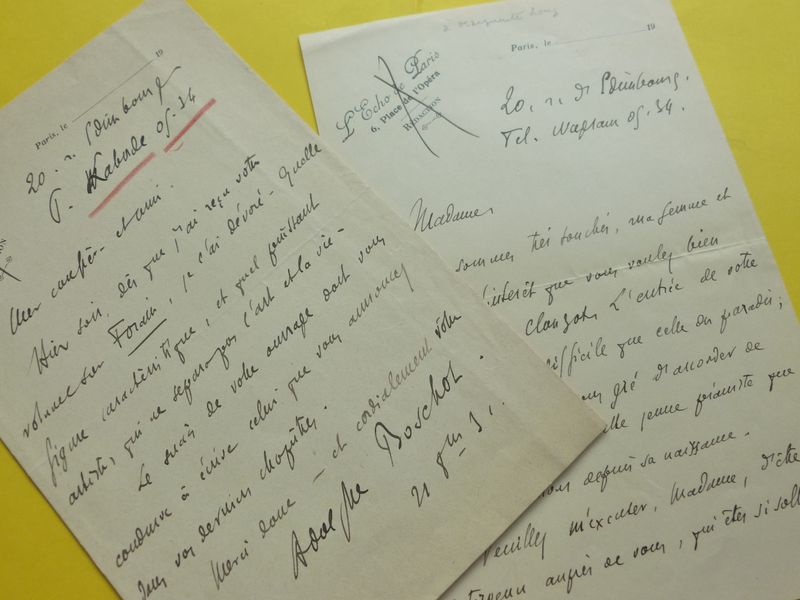 Paris, le 19
20. r. de Edimbourg
T. Laborde 05-34
Mon confrère et ami.
Hier soir, dès que j'ai reçu votre
volume sur Forain, je l'ai dévoré. Quelle
figure caractéristique, et quel puissant
artiste, qui ne sépare pas l'art et la vie.
Le succès de votre ouvrage doit vous
conduire à écrire celui que vous annoncez
dans vos derniers chapitres.
Merci donc – et cordialement vôtre
Adolphe Boschot.
21
Paris, le 19
L'Echo de Paris
6, Place de l'Opéra
RÉDACTION
20. r. de Edimbourg.
Tel. Wagram 05.34.
Madame,
sommes très touchés, ma femme et
l'intérêt que vous voulez bien
L'entrée de votre
difficile que celle du paradis,
gré d'accorder de
jeune pianiste que
depuis sa naissance.
Veuillez m'excuser, Madame, d'être
auprès de vous, qui êtes si soll